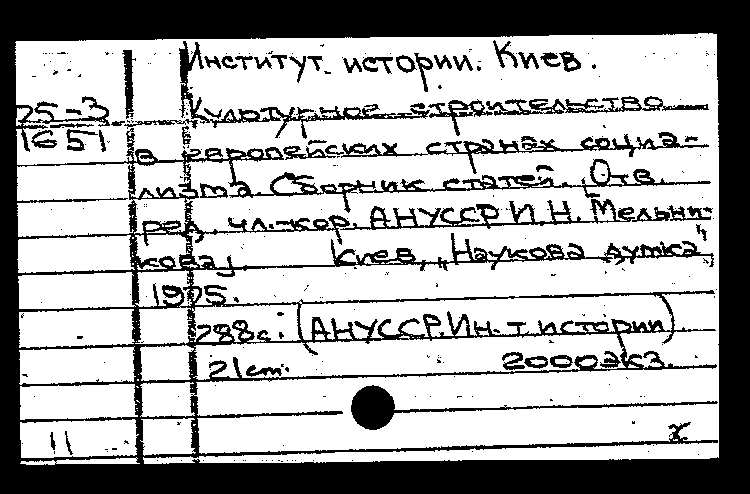 Институт истории. Киев.
75-3 Культурное строительство
1651 в европейских странах социа-
лизма. Сборник статей. Отв.
ред. чл.-кор. АНУССР И.Н. Мельни-
кова]. Киев, „Наукова думка",
1975.
288с. (АНУССР. Ин-т истории)
21cm. 2000экз.
11 x